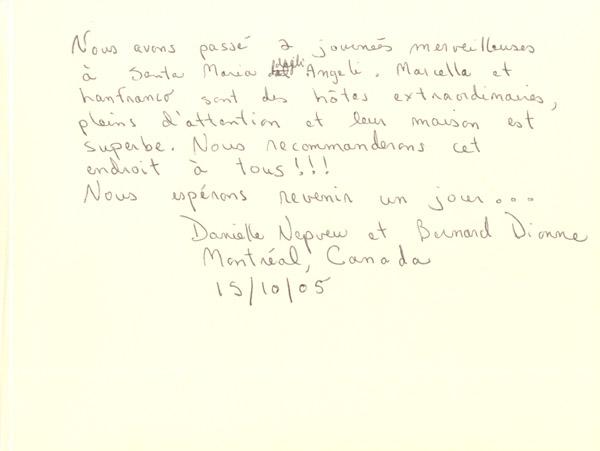 Nous avons passé 2 journées merveilleuses
à Santa Maria degli Angeli. Marcella et
Lanfranco sont des hôtes extraordinaires,
pleins d'attention et leur maison est
superbe. Nous recommanderons cet
endroit à tous!!!
Nous espérons revenir un jour...
Danielle Nepveu et Bernard Dionne
Montréal, Canada
15/10/05